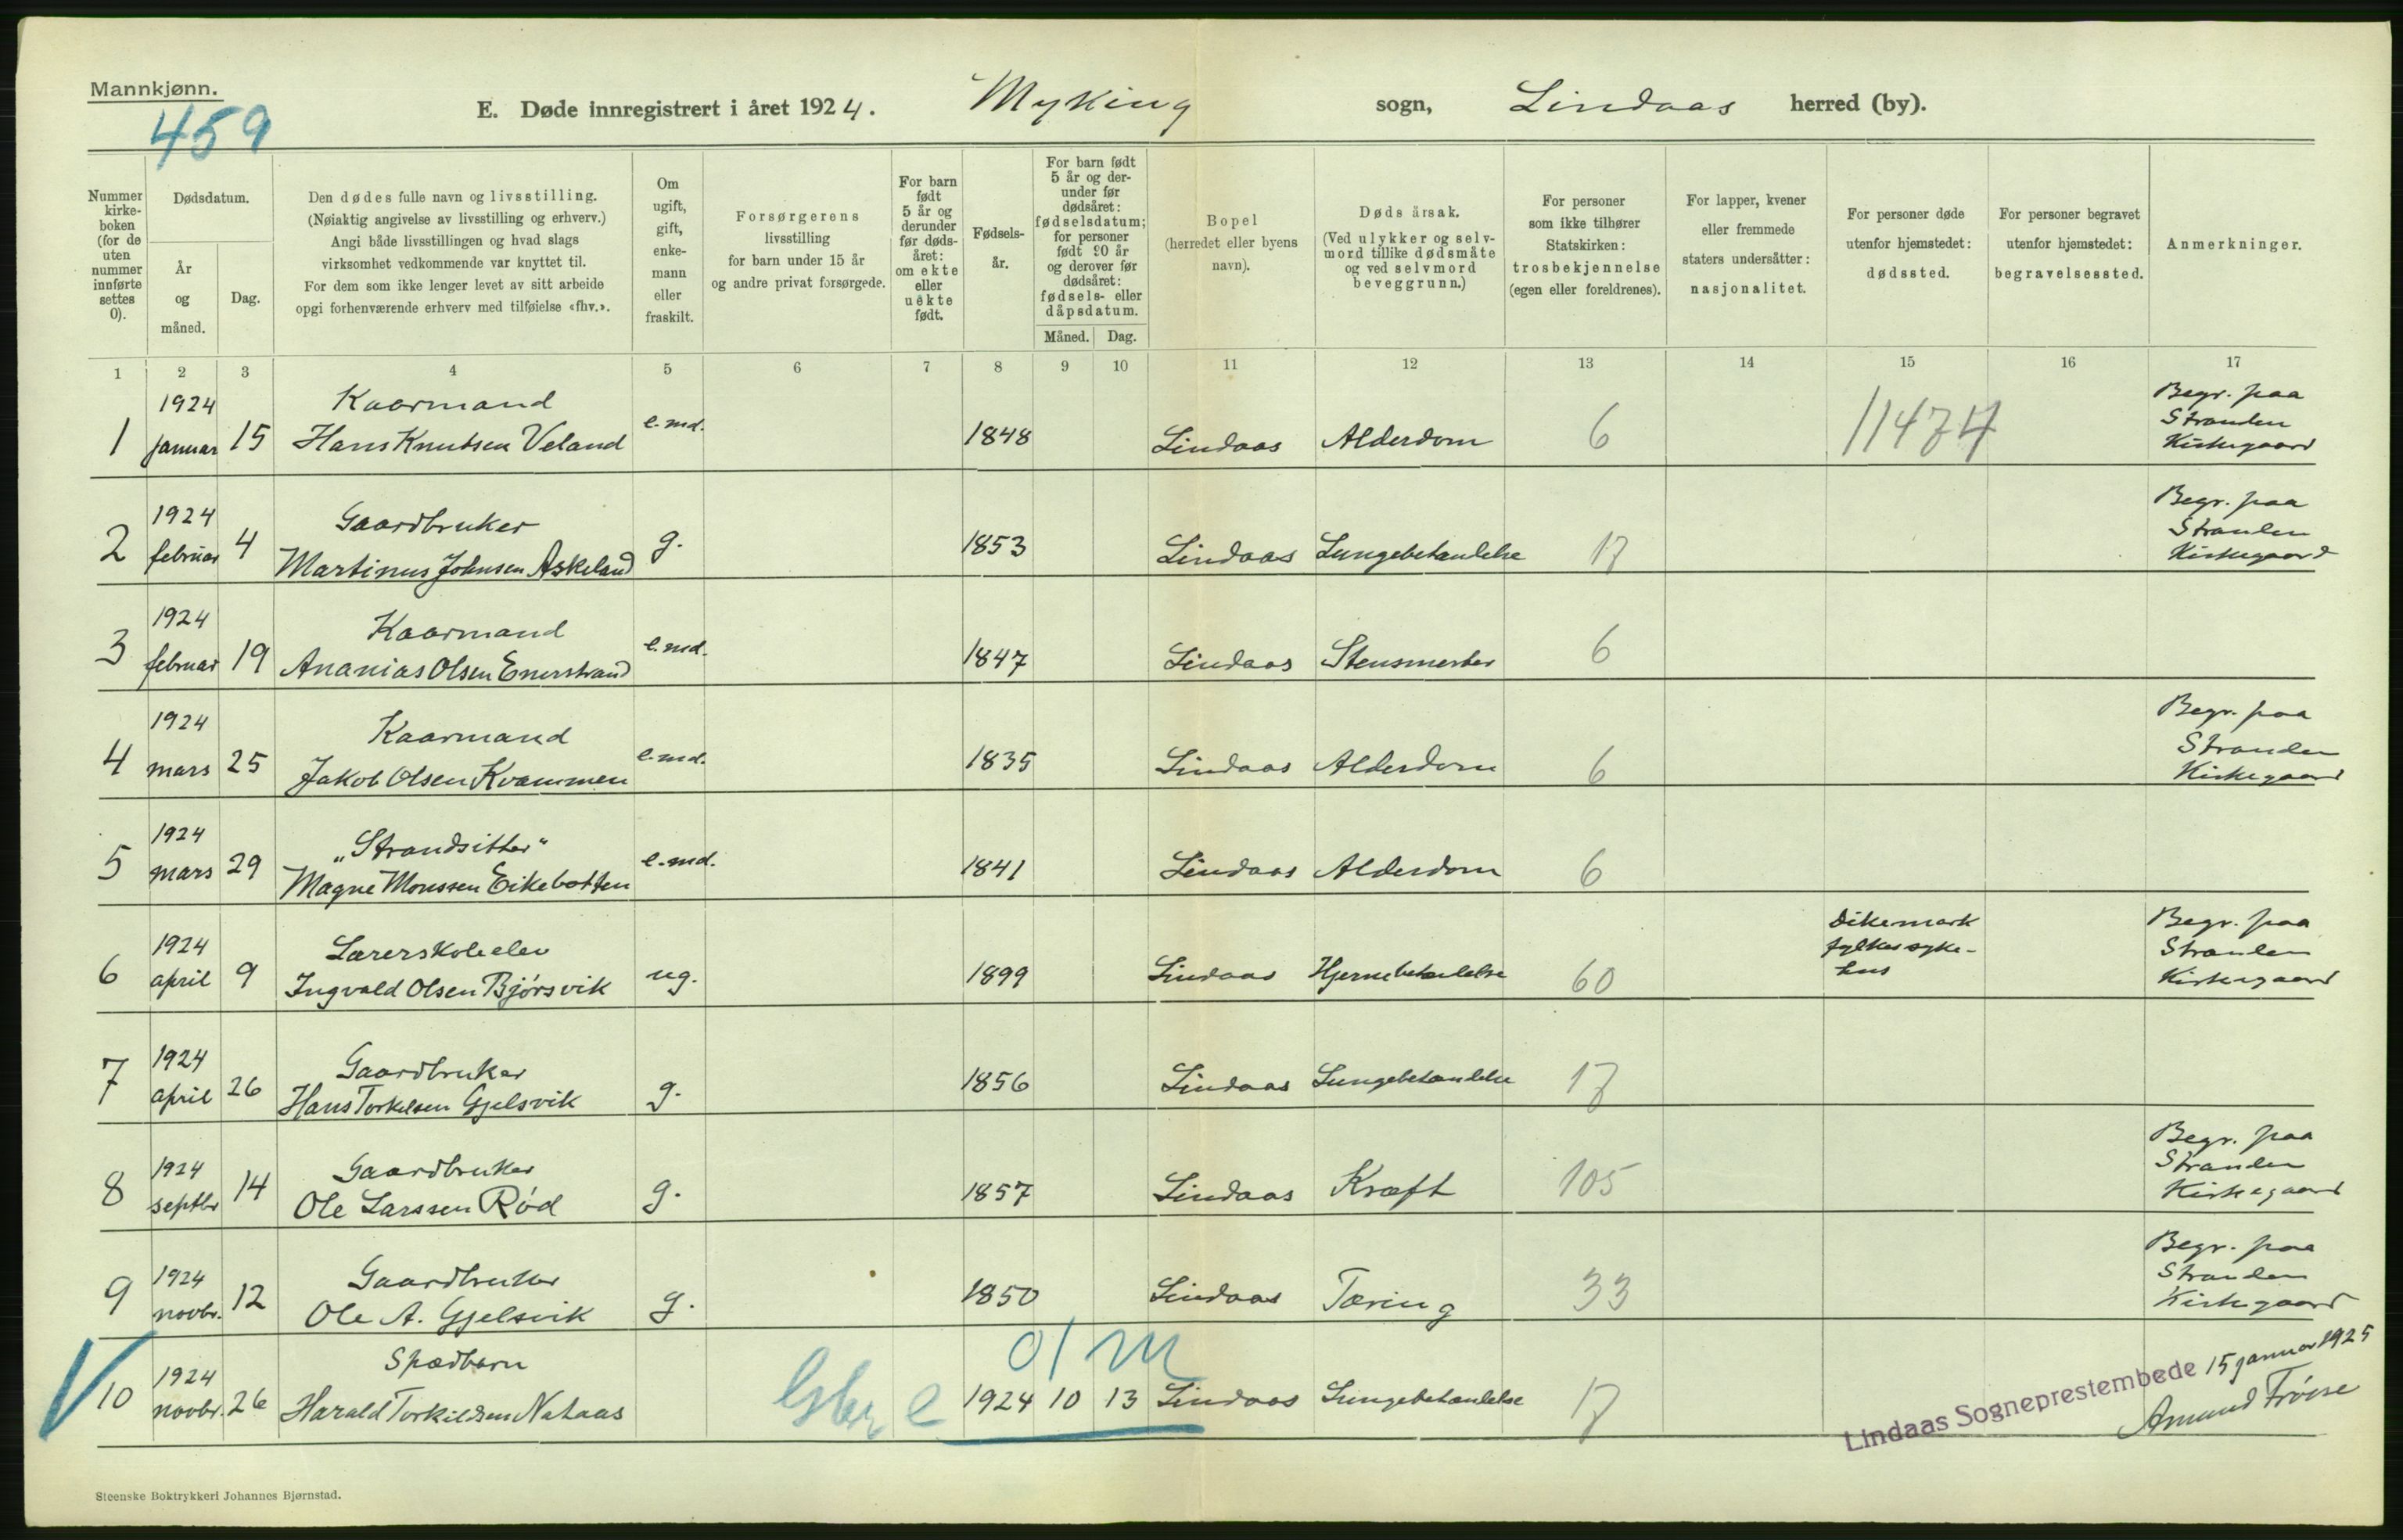 Mannkjønn.
459
E. Døde innregistrert i året 1924. Myking sogn, Lindaas herred (by).
Nummer kirke-boken (for de uten nummer innførte settes 0).
Dødsdatum.
År og måned.
Dag.
Den dødes fulle navn og livsstilling.
(Nøiaktig angivelse av livsstilling og erhverv.)
Angi både livsstillingen og hvad slags
virksomhet vedkommende var knyttet til.
For dem som ikke lenger levet av sitt arbeide
opgi forhenværende erhverv med tilføielse «fhv.».
Om ugift, gift, enke-mann eller fraskilt.
Forsørgerens
livsstilling
for barn under 15 år
og andre privat forsørgede.
For barn født 5 år og derunder før døds-året: om ekte eller uekte født.
Fødsels-år.
For barn født 5 år og der-under før dødsåret: fødselsdatum; for personer født 90 år og derover før dødsåret: fødsels- eller dåpsdatum.
Måned. Dag.
Bopel
(herredet eller byens
navn).
Døds årsak.
(Ved ulykker og selv-
mord tillike dødsmåte
og ved selvmord
beveggrunn.)
For personer
som ikke tilhører
Statskirken:
trosbekjennelse
(egen eller foreldrenes).
For lapper, kvener
eller fremmede
staters undersåtter:
nasjonalitet.
For personer døde
utenfor hjemstedet:
dødssted.
For personer begravet
utenfor hjemstedet:
begravelsessted.
Anmerkninger.
1 2 3 4 5 6 7 8 9 10 11 12 13 14 15 16 17
1924 Kaarmand Begr. paa
1 januar 15 Hans Knutsen Veland e.md. 1848 Lindaas Alderdom 6 11474 Stranden
Kirkegaard
1924 Gaardbruker Begr. paa
2 februar 4 Martinus Johnsen Askeland g. 1853 Lindaas Lungebetændelse 17 Stranden
Kirkegaard
1924 Kaarmand
3 februar 19 Ananias Olsen Enerstrand e.md. 1847 Lindaas Stensmerter 6
1924 Kaarmand Begr. paa
4 mars 25 Jakob Olsen Kvammen e.md. 1835 Lindaas Alderdom 6 Stranden
Kirkegaard
1924 "Strandsitter"
5 mars 29 Magne Monssen Eikebotten e.md. 1841 Lindaas Alderdom 6
1924 Lærerskoleelev Dikemark Begr. paa
6 april 9 Ingvald Olsen Bjørsvik ug. 1899 Lindaas Hjernebetændelse 60 fylkessyke- Stranden
hus Kirkegaard
1924 Gaardbruker
7 april 26 Hans Torkelsen Gjelsvik g. 1856 Lindaas Lungebetændelse 17
1924 Gaardbruker Begr. paa
8 septbr 14 Ole Larssen Rød g. 1857 Lindaas Kræft 105 Stranden
Kirkegaard
1924 Gaardbruker Begr. paa
9 novbr. 12 Ole A. Gjelsvik g. 1850 Lindaas Tæring 33 Stranden
Kirkegaard
1924 Spædbarn 01 m
10 novbr. 26 Harald Torkildsen Nataas Gbr e 1924 10 13 Lindaas Lungebetændelse 17
Lindaas Sogneprestembede 15 januar 1925
Amund
Steenske Boktrykkeri Johannes Bjørnstad.